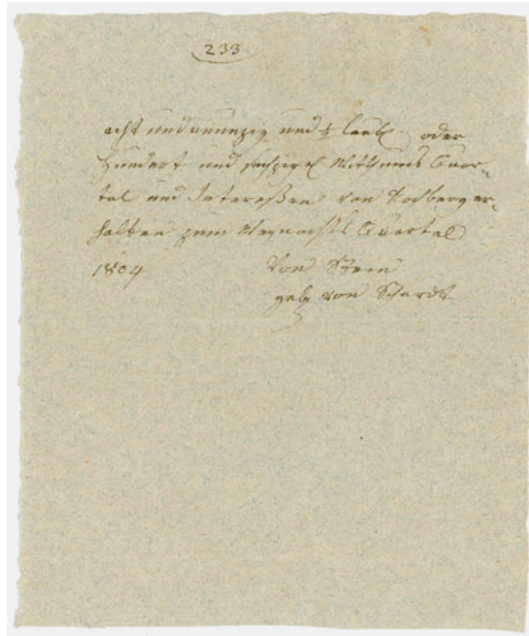 233
acht und neunzig und ½ laubt oder
Hundert und sechzig rl Witthums Quar-
tal und Intereßen von Kochberg er-
halten zum Weynachts Quartal
1804 Von Stein
geb von Schardt